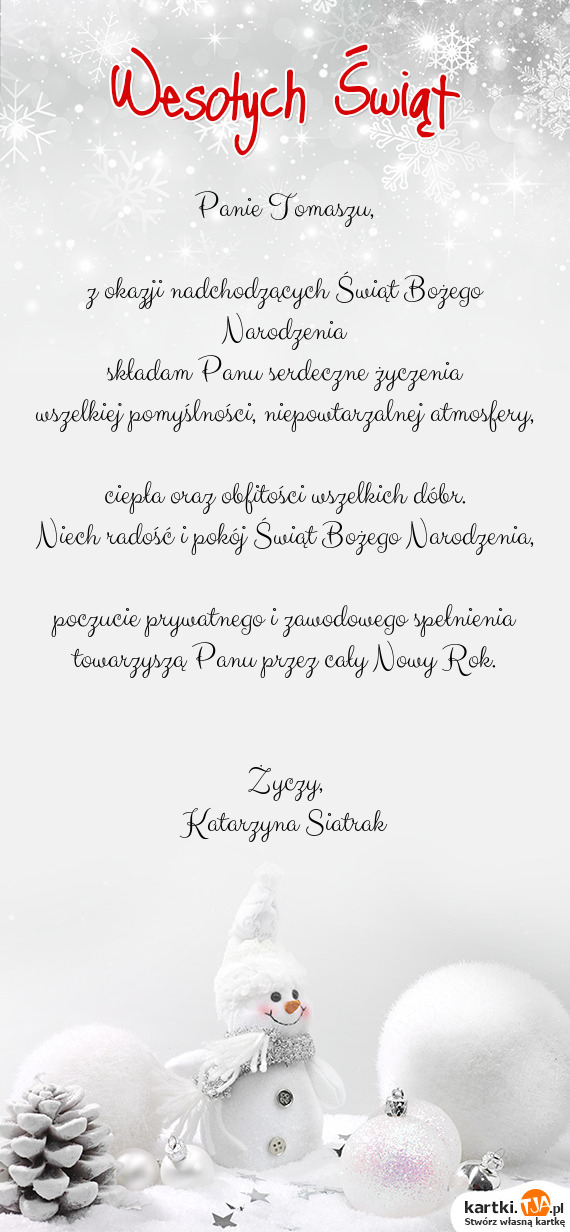 Wesołych Świąt
Panie Tomaszu,
z okazji nadchodzących Świąt Bożego
Narodzenia
składam Panu serdeczne życzenia
wszelkiej pomyślności, niepowtarzalnej atmosfery,
ciepła oraz obfitości wszelkich dóbr.
Niech radość i pokój Świąt Bożego Narodzenia,
poczucie prywatnego i zawodowego spełnienia
towarzyszą Panu przez cały Nowy Rok.
Życzy,
Katarzyna Siatrak
kartki.TJA.pl
Stwórz własną kartkę